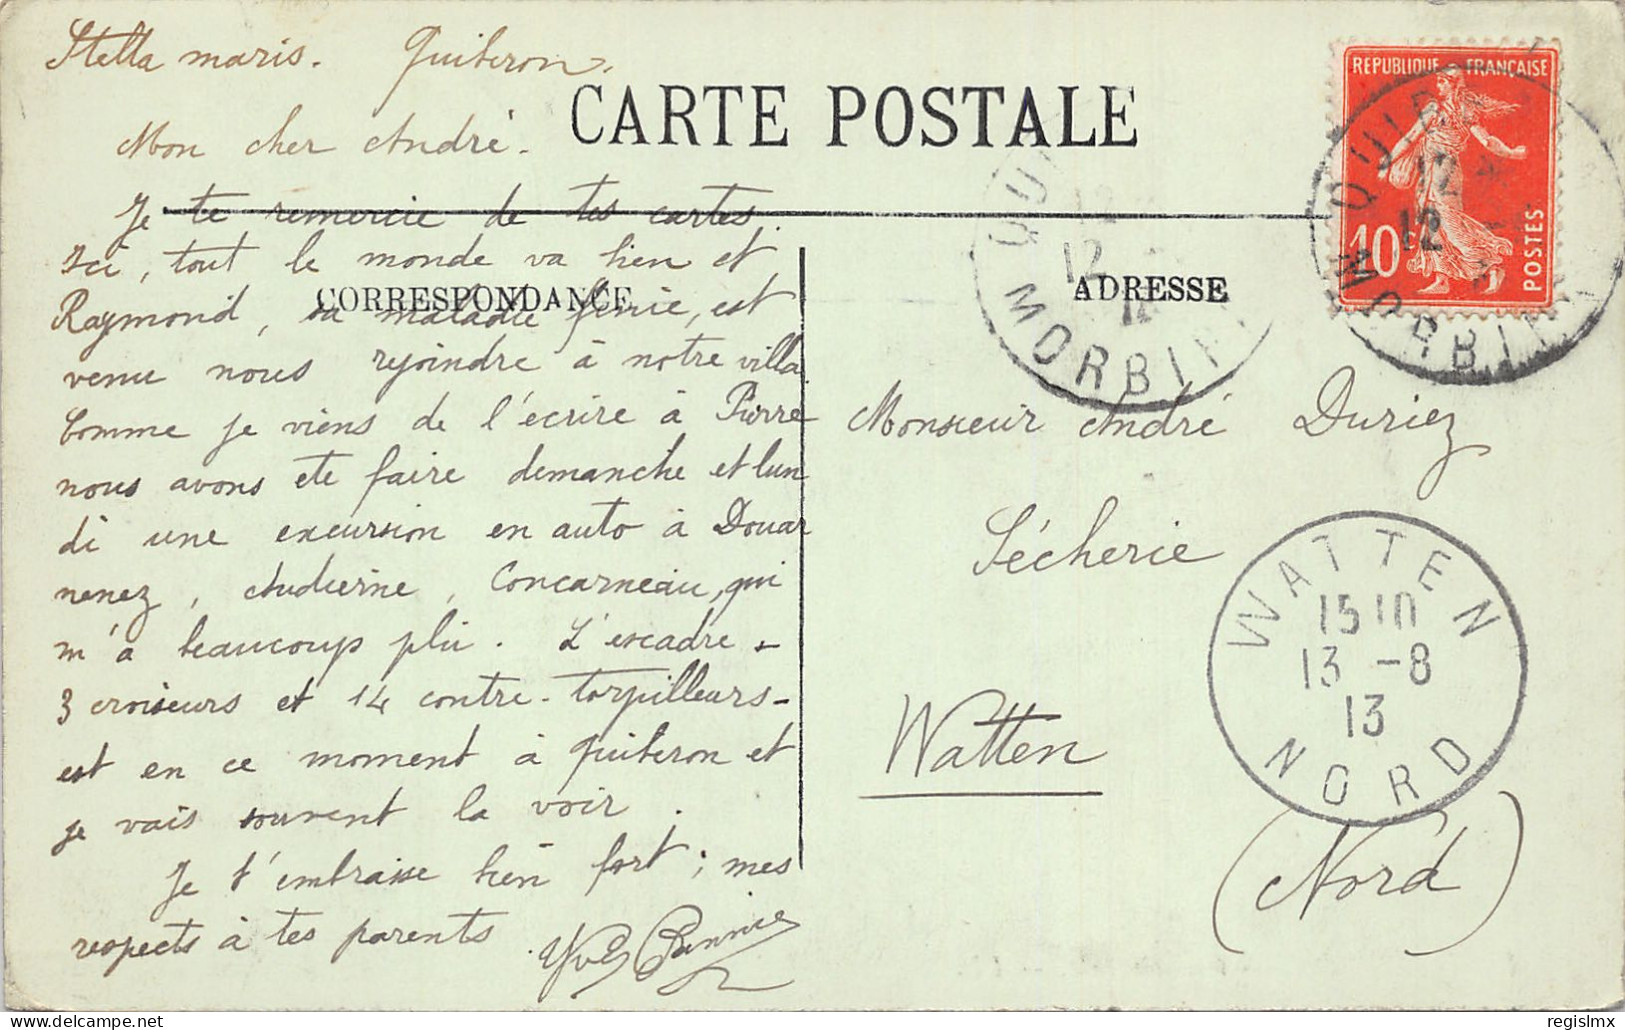 Stella maris. Quiberon.
CARTE POSTALE
Mon cher André.
Je te remercie de tes cartes.
Ici, tout le monde va bien et
Raymond, sa maladie finie, est
venu nous rejoindre à notre villa
Comme je viens de l'écrire à Pierre
nous avons ete faire demanche et lun
di une excursion en auto à Douar
nenez, Audierne, Concarneau, qui
m'a beaucoup plu. L'escadre -
3 croiseurs et 14 contre-torpilleurs -
est en ce moment à Quiberon et
je vais souvent la voir.
Je t'embrasse bien fort; mes
respects à tes parents.
Yves
CORRESPONDANCE
ADRESSE
Monsieur André Duriez
Sécherie
Watten
(Nord)
REPUBLIQUE FRANÇAISE
10
POSTES
QUI
12
12
MORBI
QUIB
12
12
MORBI
WATTEN
15 10
13 -8
13
NORD
regislmx
delcampe.net